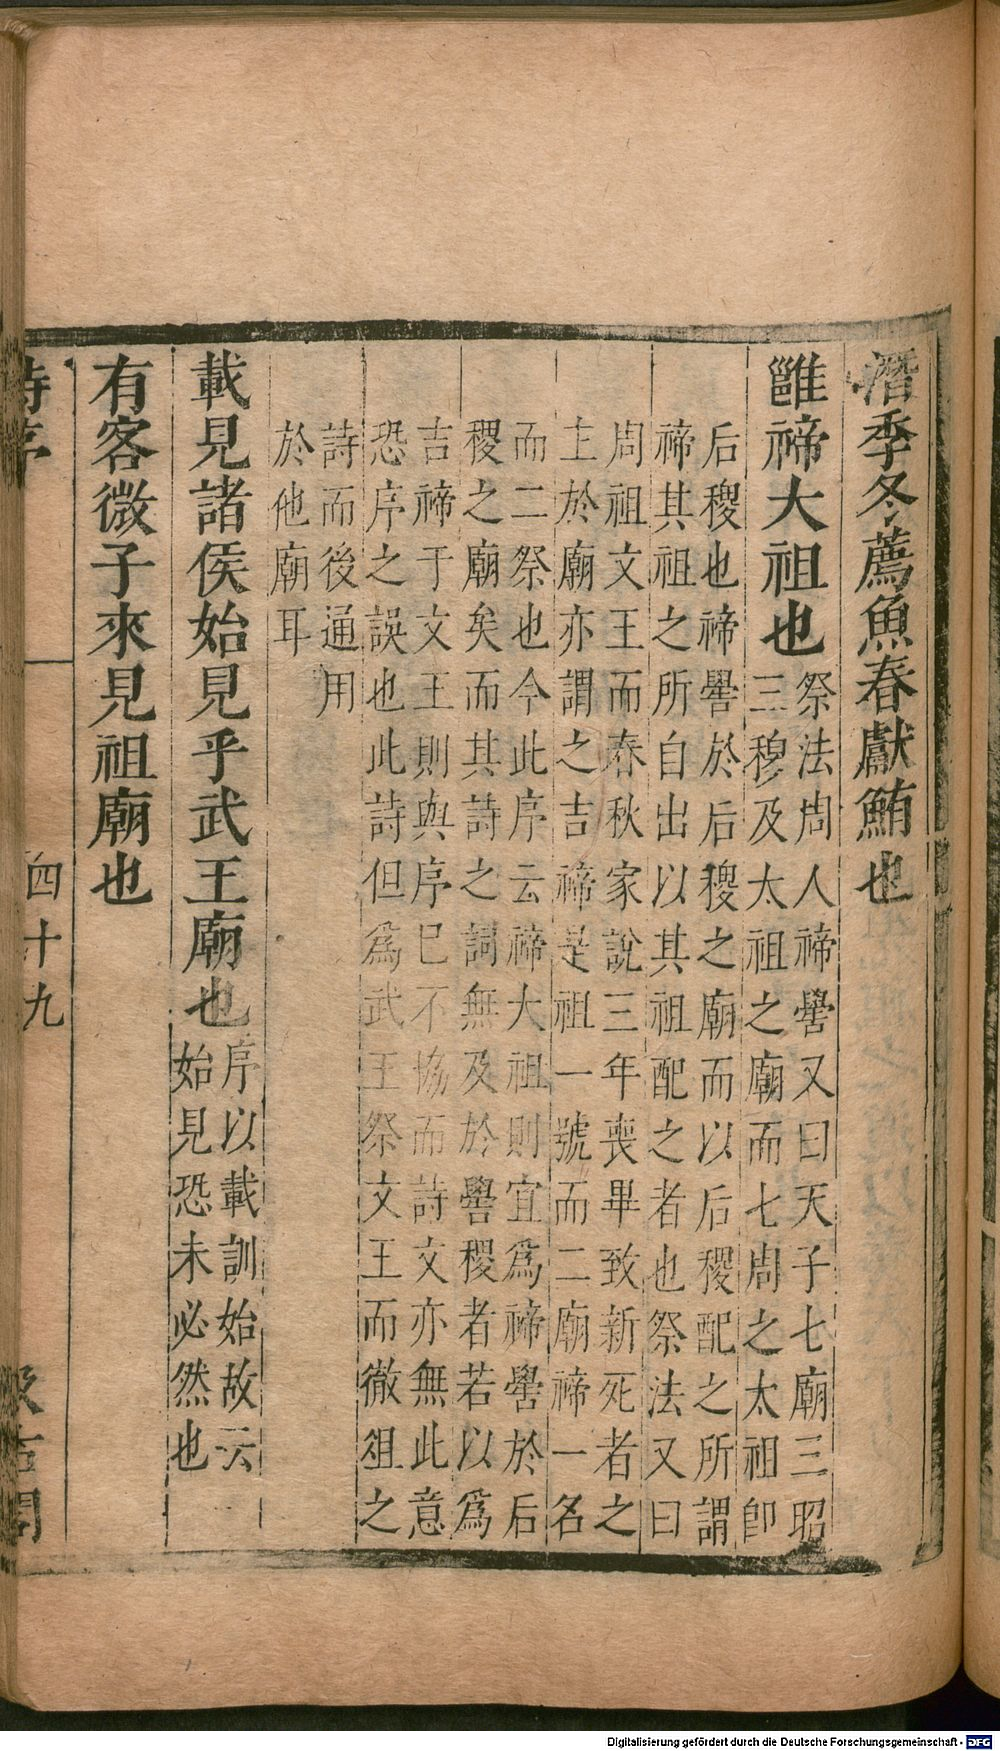 潛季冬薦魚春獻鮪也
雝禘大祖也
祭法周人禘嚳又曰天子七廟三昭
三穆及太祖之廟而七周之太祖卽
后稷也禘嚳於后稷之廟而以后稷配之所謂
禘其祖之所自出以其祖配之者也祭法又曰
周祖文王而春秋家說三年喪畢致新死者之
主於廟亦謂之吉禘是祖一號而二廟禘一名
而二祭也今此序云禘大祖則宜爲禘嚳於后
稷之廟矣而其詩之詞無及於嚳稷者若以爲
吉禘于文王則與序已不協而詩文亦無此意
恐序之誤也此詩但爲武王祭文王而徹俎之
詩而後通用
於他廟耳
載見諸侯始見乎武王廟也
序以載訓始故云
始見恐未必然也
有客微子來見祖廟也
詩序
四十九
汲古閣
Digitalisierung gefördert durch die Deutsche Forschungsgemeinschaft - DFG